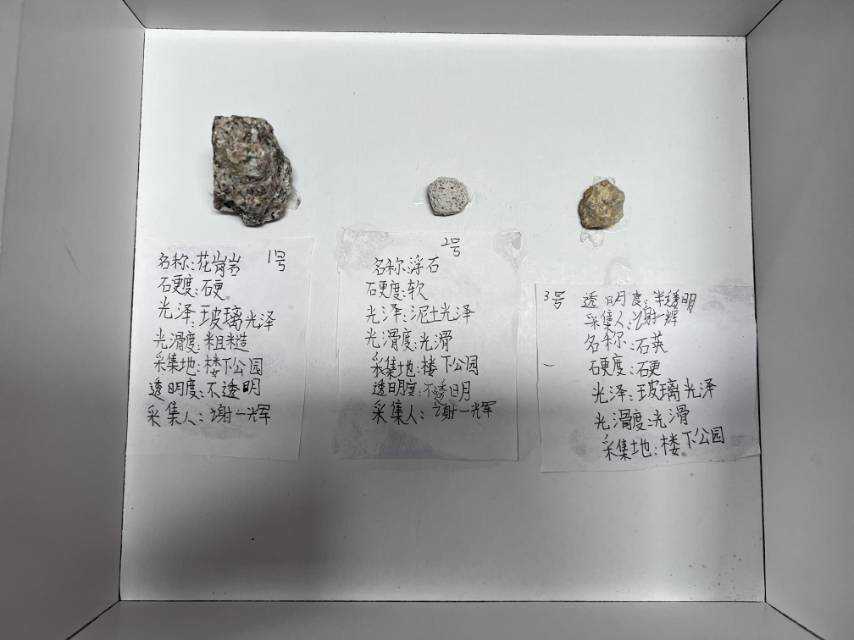 1号
名称:花岗岩
石硬度:石硬
光泽:玻璃光泽
光滑度:粗糙
采集地:楼下公园
透明度:不透明
采集人:谢一辉
2号
名称:浮石
石硬度:软
光泽:泥土光泽
光滑度:光滑
采集地:楼下公园
透明度:不透明
采集人:谢一辉
3号 透明度:半透明
采集人:谢一辉
名称:石英
石硬度:石硬
光泽:玻璃光泽
光滑度:光滑
采集地:楼下公园